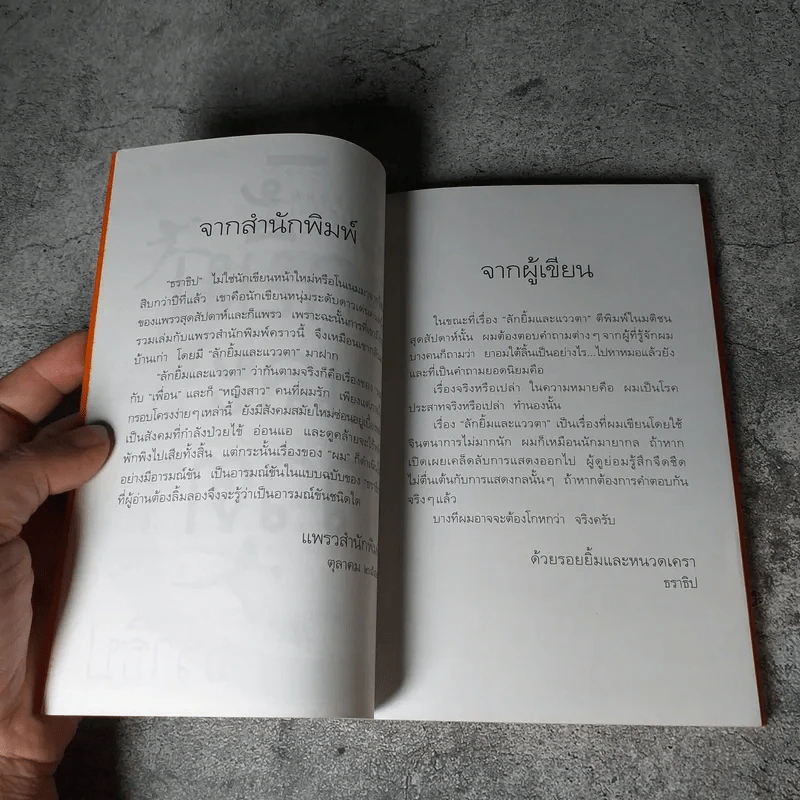 จากสำนักพิมพ์
"ธราธิป" ไม่ใช่นักเขียนหน้าใหม่หรือโนเนม
สิบกว่าปีที่แล้ว เขาคือนักเขียนหนุ่มระดับดาวเด่น
ของแพรวสุดสัปดาห์และก็แพรว เพราะฉะนั้นการที่
รวมเล่มกับแพรวสำนักพิมพ์คราวนี้ จึงเหมือน
บ้านเก่า โดยมี "ลักยิ้มและแววตา" มาฝาก
"ลักยิ้มและแววตา" ว่ากันตามจริงก็คือเรื่องของ
กับ "เพื่อน" และก็ "หญิงสาว" คนที่ผมรัก เพียงแต่
กรอบโครงง่ายๆเหล่านี้ ยังมีสังคมสมัยใหม่ซ่อนอยู่
เป็นสังคมที่กำลังป่วยไข้ อ่อนแอ และดูคล้ายจะไร้
พักพิงไปเสียทั้งสิ้น แต่กระนั้นเรื่องของ "ผม" ก็
อย่างมีอารมณ์ขัน เป็นอารมณ์ขันในแบบฉบับของ
ที่ผู้อ่านต้องลิ้มลองจึงจะรู้ว่าเป็นอารมณ์ขันชนิดใด
แพรวสำนักพิมพ์
ตุลาคม
จากผู้เขียน
ในขณะที่เรื่อง "ลักยิ้มและแววตา" ตีพิมพ์ในมติชน
สุดสัปดาห์นั้น ผมต้องตอบคำถามต่างๆจากผู้ที่รู้จักผม
บางคนก็ถามว่า ยาอมใต้ลิ้นเป็นอย่างไร...ไปหาหมอแล้วยัง
และที่เป็นคำถามยอดนิยมคือ
เรื่องจริงหรือเปล่า ในความหมายคือ ผมเป็นโรค
ประสาทจริงหรือเปล่า ทำนองนั้น
เรื่อง "ลักยิ้มและแววตา" เป็นเรื่องที่ผมเขียนโดยใช้
จินตนาการไม่มากนัก ผมก็เหมือนนักมายากล ถ้าหาก
เปิดเผยเคล็ดลับการแสดงออกไป ผู้ดูย่อมรู้สึกจืดชืด
ไม่ตื่นเต้นกับการแสดงกลนั้นๆ ถ้าหากต้องการคำตอบกัน
จริงๆแล้ว
บางทีผมอาจจะต้องโกหกว่า จริงครับ
ด้วยรอยยิ้มและหนวดเครา
ธราธิป